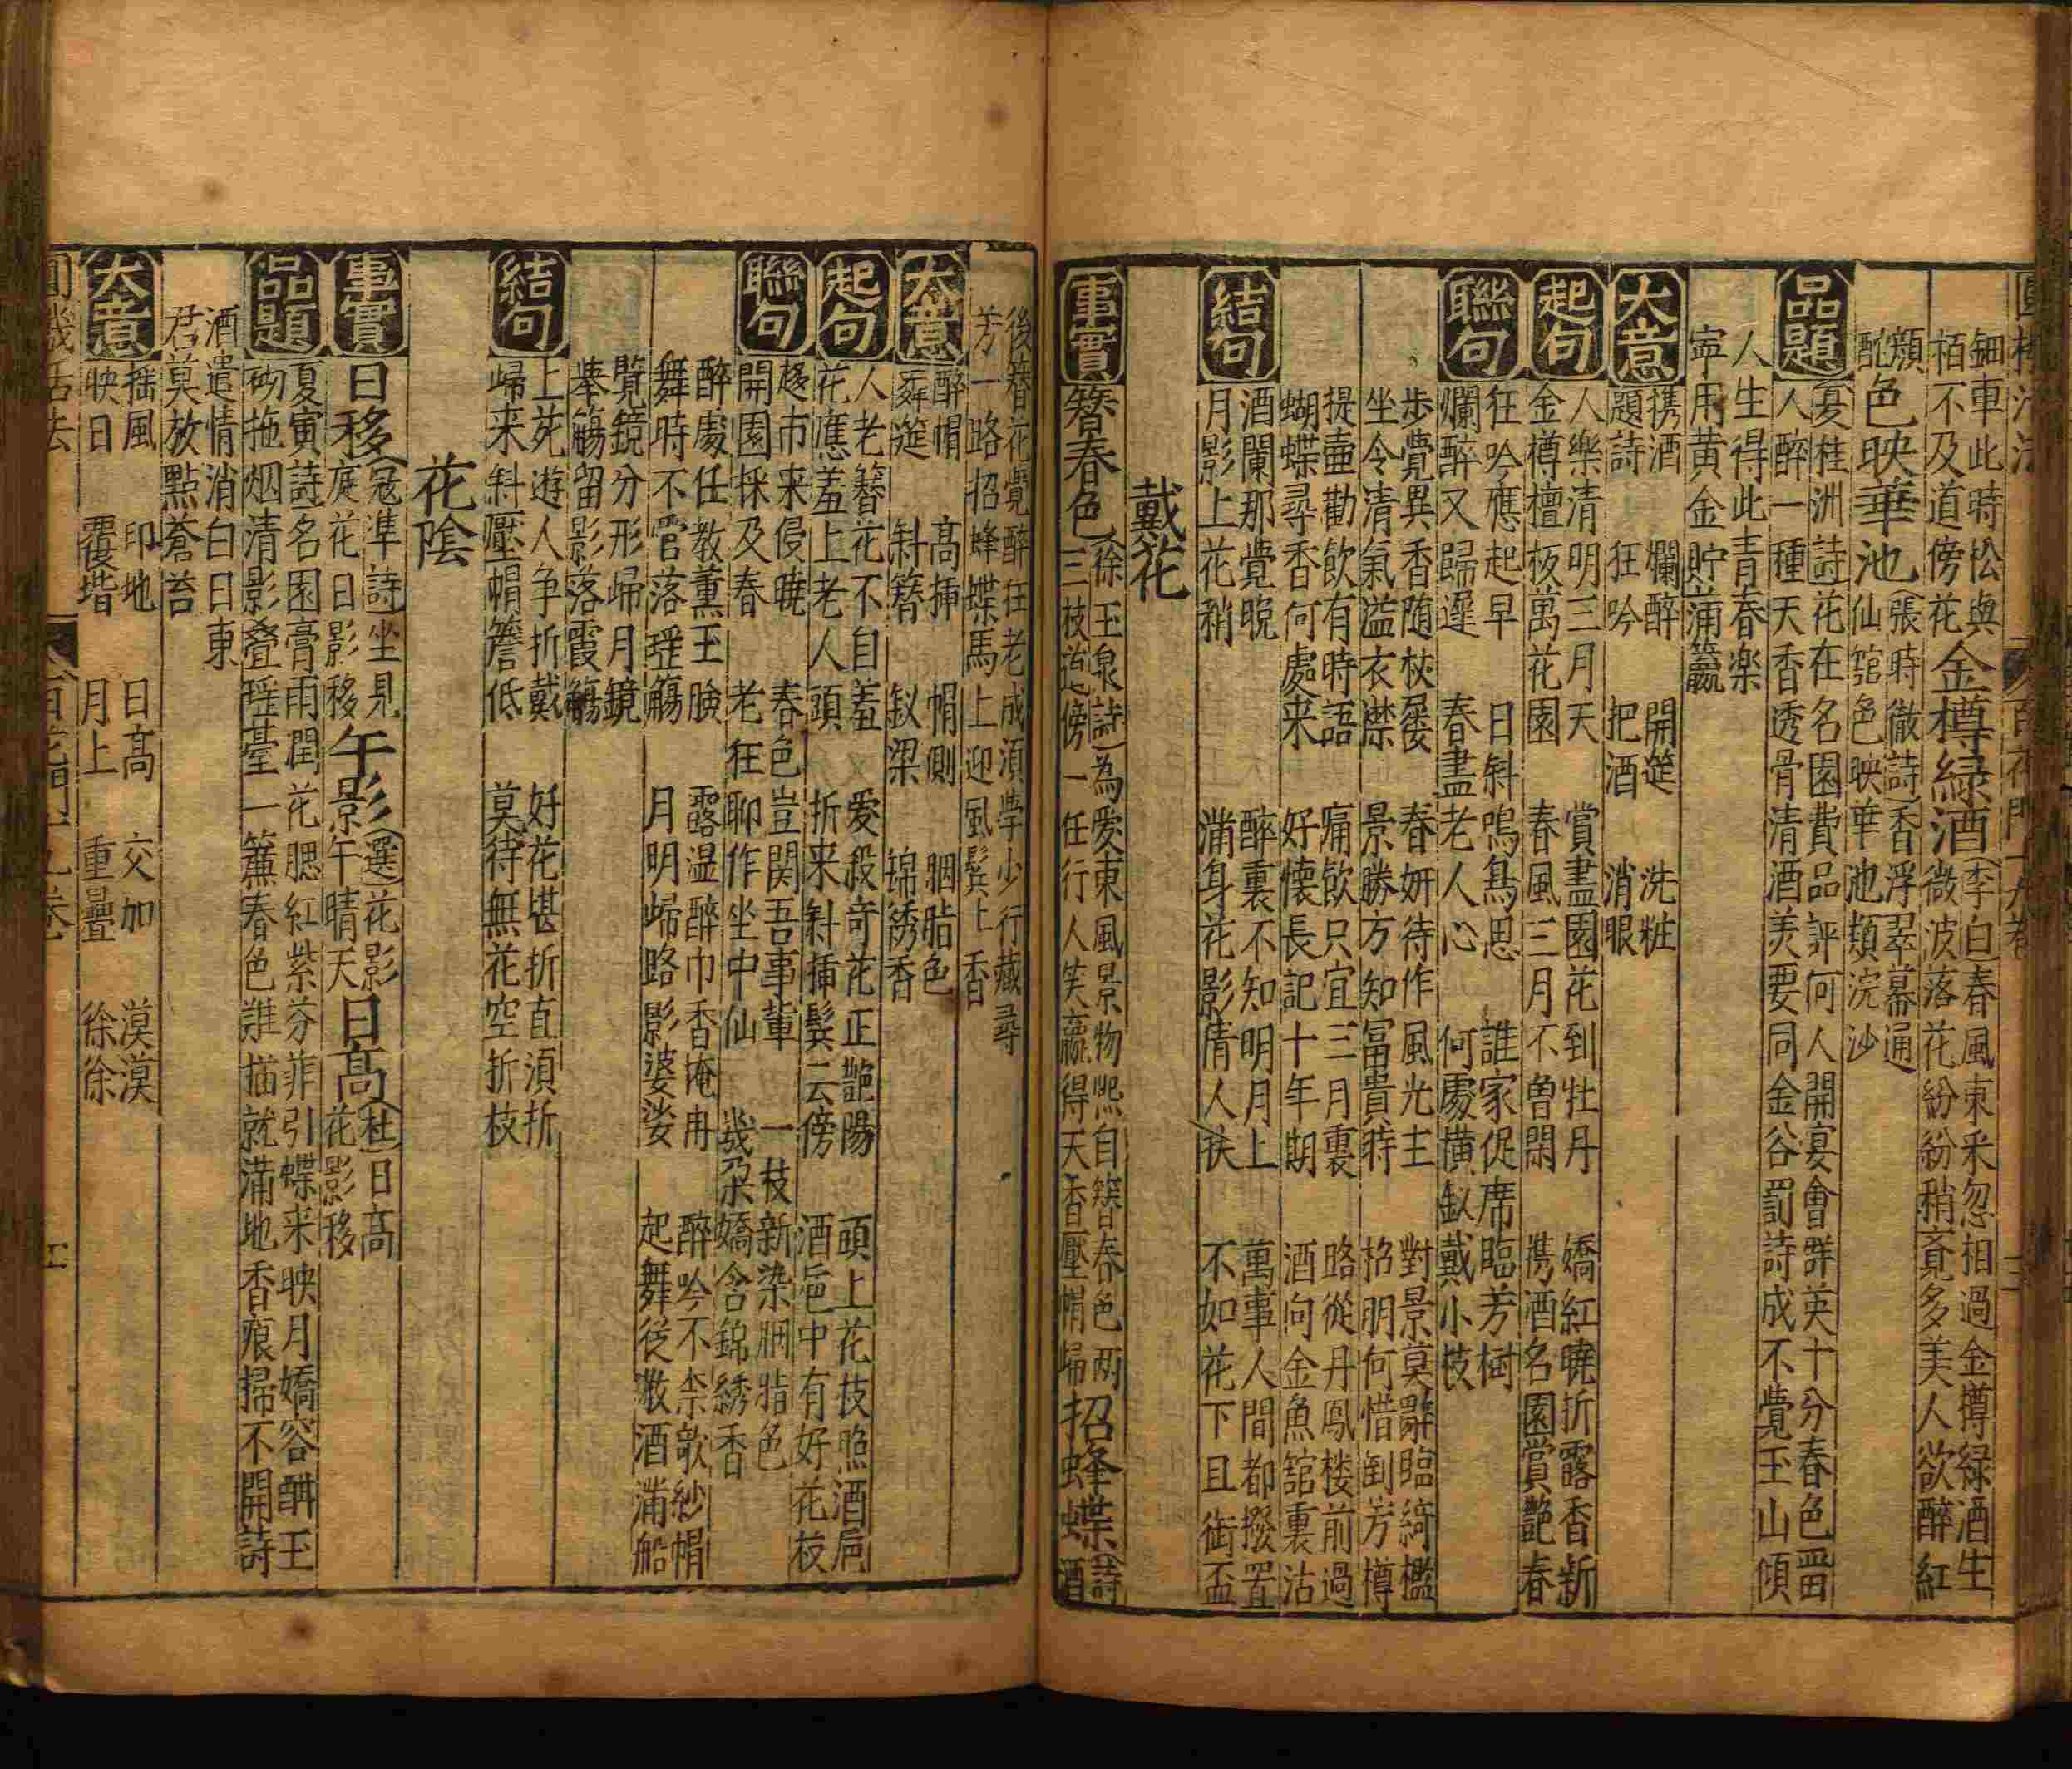 鈿車此時松與
栢不及道傍花
金樽緑酒
李白春風東来忽相過金樽緑酒生
微波落花紛紛稍覔多美人欲醉紅
顔
酡
色映華池
張時徹詩香浮翠幕通
仙舘色映華池類浣沙
品題
夏桂洲詩花在名園費品評何人開宴會群英十分春色畱
人醉一種天香透骨清酒美要同金谷罰詩成不覺玉山傾
人生得此青春楽
寧用黄金貯滿籯
大意
携酒 爛醉 開筵 洗粧
題詩 狂吟 把酒 消眼
起句
人樂清明三月天 賞盡園花到牡丹 嬌紅曉折露香新
金樽檀板萬花園 春風三月不曽閑 携酒名園賞艶春
聯句
狂吟應起早 日斜嗚鳥思 誰家促席臨芳樹
爛醉又歸遲 春盡老人心 何處横釵戴小枝
歩覺異香随杖屨 春妍待作風光主 對景莫辭臨綺檻
坐令清氣溢衣襟 景勝方知冨貴時 招朋何惜倒芳樽
提壷勸飲有時語 痛飲只宜三月裏 路從丹鳳楼前過
蝴蝶尋香何處来 好懐長記十年期 酒向金魚舘裏沽
結句
酒闌那覺晚 醉裏不知明月上 萬事人間都撥置
月影上花稍 滿身花影倩人扶 不如花下且銜盃
戴花
事實
簪春色
徐玉泉詩為愛東風景物熈自簪春色两
三枝道傍一任行人笑贏得天香壓帽歸
招蜂蝶
詩酒
後簪花覺醉狂老成須學少行藏尋
芳一路招蜂蝶馬上迎風鬂上香
大意
醉帽 髙挿 帽側 胭脂色
舞筵 斜簪 釵梁 錦綉香
起句
人老簪花不自羞 愛殺奇花正艶陽 頭上花枝照酒巵
花應羞上老人頭 折来斜挿鬂云傍 酒巵中有好花枝
聯句
趂市来侵曉 春色豈関吾事軰 一枝新染胭脂色
開園採及春 老狂聊作坐中仙 幾朶嬌含錦綉香
醉處任教薫玉臉 露湿醉巾香掩冉 醉吟不柰欹紗帽
舞時不管落瑶觴 月明歸路影婆娑 起舞從教酒滿船
覽鏡分形歸月鏡
舉觴留影落霞觴
結句
上苑遊人争折戴 好花堪折直須折
歸来斜壓帽簷低 莫待無花空折枝
花陰
事實
日移
冦凖詩坐見
庭花日影移
午影
選花影
午晴天
日髙
杜日髙
花影移
品題
夏寅詩名園膏雨潤花腮紅紫芬菲引蝶来映月嬌容酣玉
砌拖烟清影叠瑶臺一簾春色誰描就滿地香痕掃不開詩
酒遣情消白日東
君莫放點蒼苔
大意
揺風 印地 日髙 交加 漠漠
映日 覆堦 月上 重疊 徐徐